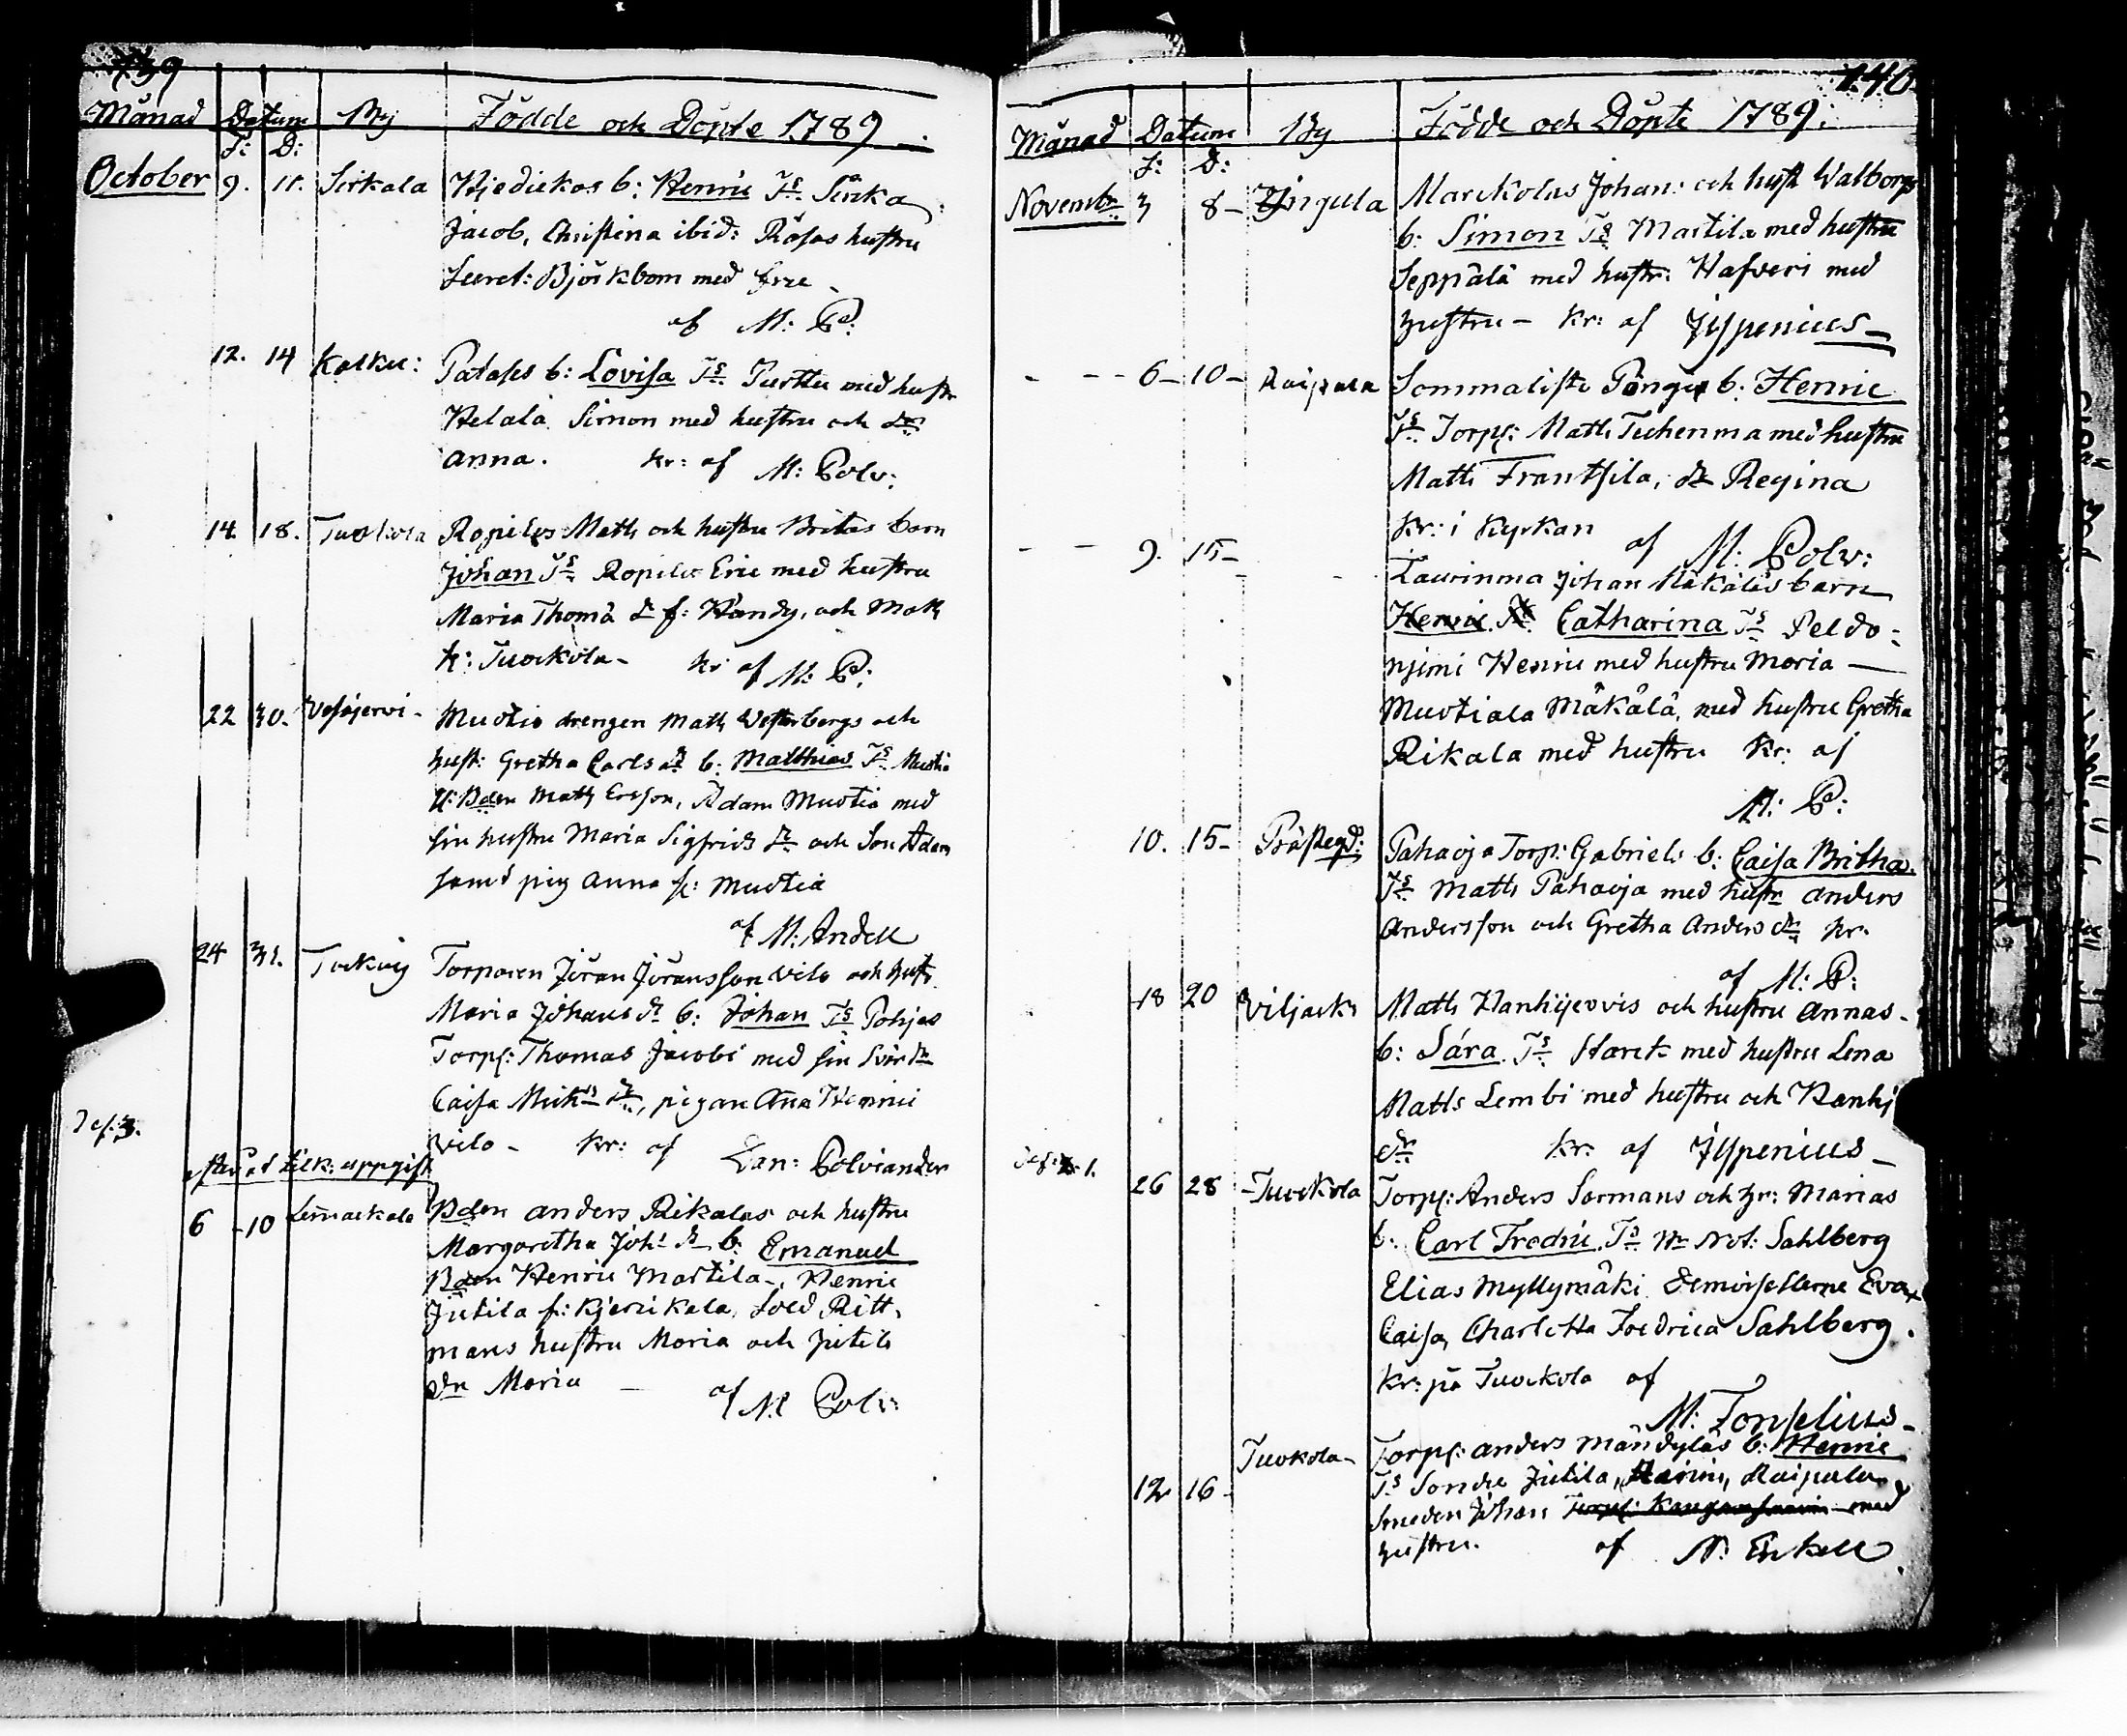 139
Månad Datum By Födde och Döpte 1789.
F: D:
October 9. 11. Sirkala Kjedickas b: Henric Ts Sirka
Jacob, Christina ibid: Råsas hustru
Secret: Björkbom med Frue
af M: P:
12. 14 Kalku: Patases b: Lovisa Ts Purttu med hustr
Helalä Simon med hustru och dr
Anna. Kr: af M: Polv:
14. 18. Tuokola Ropilas Matts och hustru Britas barn
Johan Ts Ropila Eric med hustru
Maria Thomæ dr f: Handy, och Matts
k: Tuockola - kr af M: P:
22 30. Vesajervi - Muotio drengen Matts Westerbergs och
hust: Gretha Carls dr b: Matthias Ts Muotio
U: Bden Matts Ersson, Adam Muotio med
sin hustru Maria Sigfrids dr och Son Adam
samt pig Anna fr: Muotia
af M: Andell
24 31. Torparen Jöran Jöransson Vilo och hustr
Maria Johans dr b: Johan Ts Pohjas
Torps: Thomas Jacobi med sin Svär dr
Caisa Mick dr, pigan Aña Henrici
Vilo - kr: af Dan: Polviander
efteråt Til k: uppgift
6 - 10 Bden Anders Rikalas och hustru
Margaretha Joh: dr b: Emanuel
Bden Henric Martila, Henric
Jutila f: Kjerikala, Sold Ritt-
mans hustru Maria och Jutila
dr Maria - af M: Polv:
140
Månad Datum By Födde och Döpte 1789:
F: D:
Novembr 3 8 - Ingula Marckolas Johan: och hustr Walborgs
b: Simon Ts Martila med hustru
Seppälä med hustr: Hafveri med
hustru - kr: af Jsspenius -
- - - 6 - 10 - Raipala
b: Henric
Ts Torps: Matts Tuhenma med hustru
Matts Frantsila, dr Regina
kr: i kyrkan af M: Polv:
- - 9. 15 - Laurinma Johan Mäkäläs barn
Henric Ts Catharina Ts Peldo-
njimi Henric med hustru Maria -
Muotiala Mäkälä, med hustru Gretha
Rikala med hustru kr: af
M: P:
10. 15 - Prästegd: Pahaoja Torp: Gabriels b: Caisa Britha
Ts Matts Pahaoja med hustr Anders
Andersson och Gretha Anders dr kr.
af M: P:
18 20 Viljack: Matts Kanhijervis och hustru Annas -
b: Sara Ts Starck med hustru Lena
Matts Lembi med hustru och Kanhj
dr kr: af Jsspenius -
26 28 - Tuockola Torps: Anders Sormans och hr: Marias
b: Carl Fredric Ts Hr Not: Sahlberg
Elias Myllymäki Demoisellerne Eva,
Caisa, Charlotta Fredrica Sahlberg.
kr: på Tuockola af
M: Fonselius -
12 16 - Tuokola - Torps: Anders Mändyläs b: Henric
Ts Sondie Jutila, Raipala
Smeden Johan med
hustru. af N: Enkell